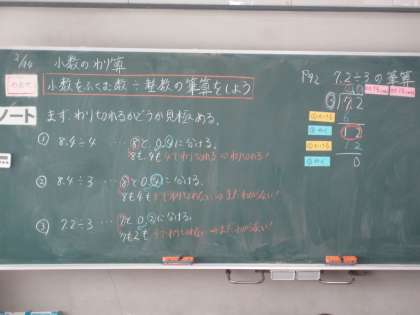 小数のわり算
めあて
小数をふくむ数÷整数の筆算をしよう
ノート
まず、わり切れるかどうか見極める。
① 8.4÷4 … 8と0.4に分ける。
8も4も4でわりきれる→わり切れる!
② 8.4÷3 … 8と0.4に分ける。
8も4も3でわりきれない→まだわからない!
③ 7.2÷3 … 7と0.2に分ける。
7も2も3でわりきれない→まだわからない!
P92 7.2÷3の筆算
3 7.2
6
1 2
1 2
0